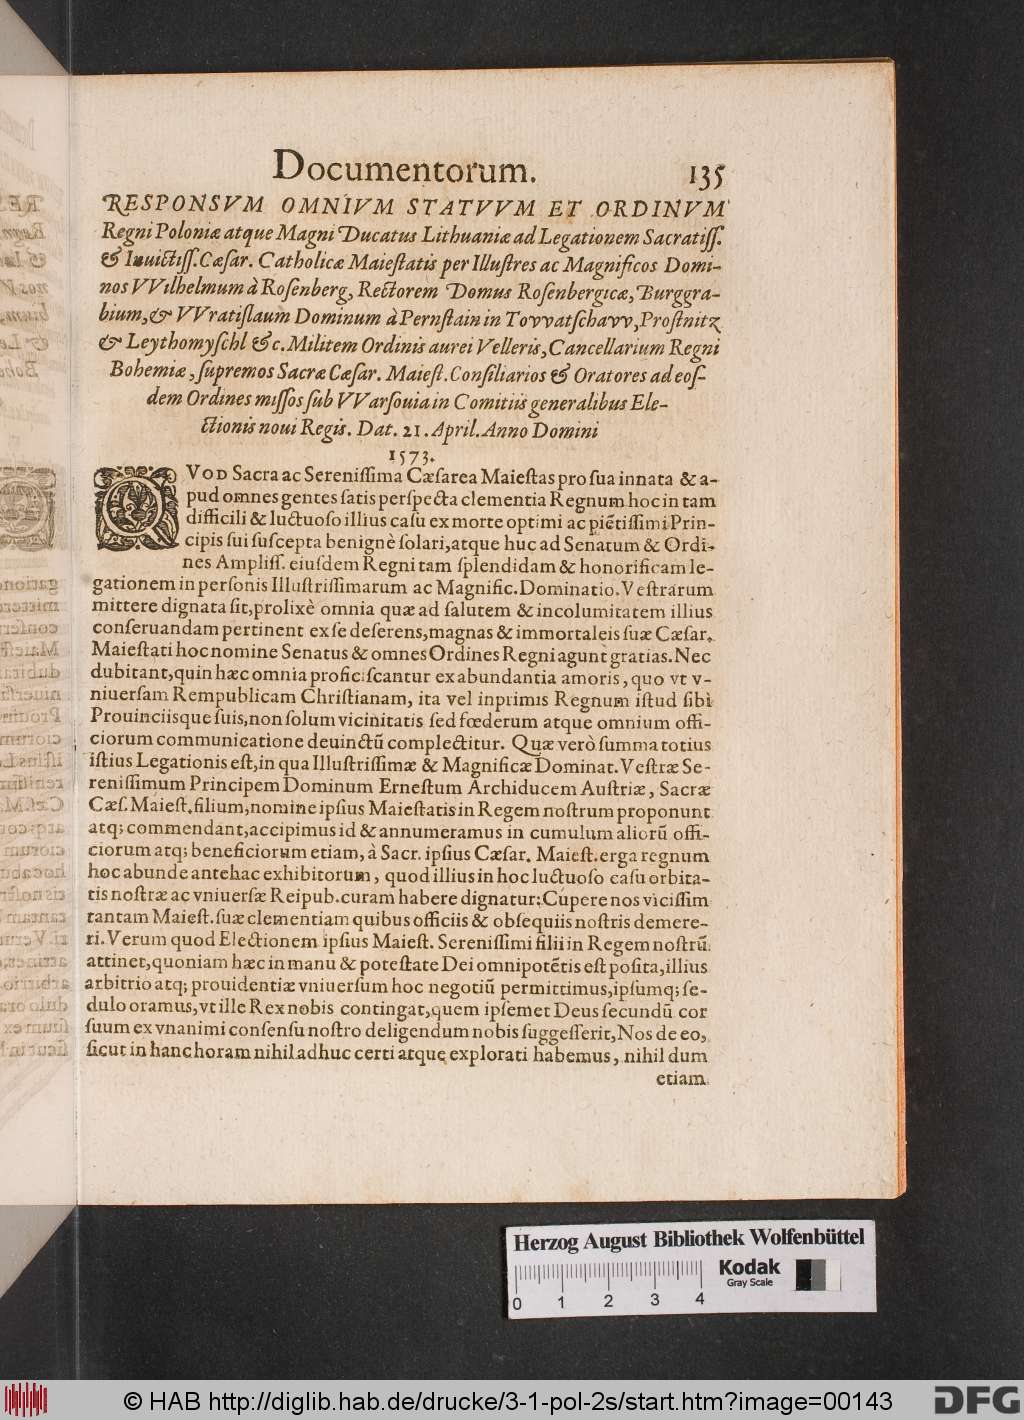 Documentorum. 135
RESPONSVM OMNIVM STATVVM ET ORDINVM
Regni Poloniæ atque Magni Ducatus Lithuaniæ ad Legationem Sacratiſſ.
& Inuictiſſ. Cæſar. Catholicæ Maieſtatis per Illuſtres ac Magnificos Domi-
nos VVilhelmum à Roſenberg, Rectorem Domus Roſenbergicæ, Burggra-
bium, & VVratiſlaum Dominum à Pernſtain in Tovvatſchavv, Proſtnitz
& Leythomyſchl &c. Militem Ordinis aurei Velleris, Cancellarium Regni
Bohemiæ, ſupremos Sacræ Cæſar. Maieſt. Conſiliarios & Oratores ad eoſ-
dem Ordines miſſos ſub VVarſouia in Comitiis generalibus Ele-
ctionis noui Regis. Dat. 21. April. Anno Domini
1573.
QVOD Sacra ac Sereniſſima Cæſarea Maieſtas pro ſua innata & a-
pud omnes gentes ſatis perſpecta clementia Regnum hoc in tam
difficili & luctuoſo illius caſu ex morte optimi ac piẽtiſſimi Prin-
cipis ſui ſuſcepta benignè ſolari, atque huc ad Senatum & Ordi-
nes Ampliſſ. eiuſdem Regni tam ſplendidam & honorificam le-
gationem in perſonis Illuſtriſſimarum ac Magnific. Dominatio. Veſtrarum
mittere dignata ſit, prolixè omnia quæ ad ſalutem & incolumitatem illius
conſeruandam pertinent ex ſe deferens, magnas & immortaleis ſuæ Cæſar.
Maieſtati hoc nomine Senatus & omnes Ordines Regni agunt gratias. Nec
dubitant, quin hæc omnia proficiſcantur ex abundantia amoris, quo vt v-
niuerſam Rempublicam Chriſtianam, ita vel inprimis Regnum iſtud ſibi
Prouinciisque ſuis, non ſolum vicinitatis ſed fœderum atque omnium offi-
ciorum communicatione deuinctũ complectitur. Quæ verò ſumma totius
iſtius Legationis eſt, in qua Illuſtriſſimæ & Magnificæ Dominat. Veſtræ Se-
reniſſimum Principem Dominum Erneſtum Archiducem Auſtriæ, Sacræ
Cæſ. Maieſt. filium, nomine ipſius Maieſtatis in Regem noſtrum proponunt
atq; commendant, accipimus id & annumeramus in cumulum aliorũ offi-
ciorum atq; beneficiorum etiam, à Sacr. ipſius Cæſar. Maieſt. erga regnum
hoc abunde antehac exhibitorum, quod illius in hoc luctuoſo caſu orbita-
tis noſtræ ac vniuerſæ Reipub. curam habere dignatur: Cupere nos viciſſim
tantam Maieſt. ſuæ clementiam quibus officiis & obſequiis noſtris demere-
ri. Verum quod Electionem ipſius Maieſt. Sereniſſimi filii in Regem noſtrũ
attinet, quoniam hæc in manu & poteſtate Dei omnipotẽtis eſt poſita, illius
arbitrio atq; prouidentiæ vniuerſum hoc negotiũ permittimus, ipſumq; ſe-
dulo oramus, vt ille Rex nobis contingat, quem ipſemet Deus ſecundũ cor
ſuum ex vnanimi conſenſu noſtro deligendum nobis ſuggeſſerit, Nos de eo,
ſicut in hanc horam nihil adhuc certi atque explorati habemus, nihil dum
etiam
Herzog August Bibliothek Wolfenbüttel
Kodak
Gray Scale
0 1 2 3 4
© HAB http://diglib.hab.de/drucke/3-1-pol-2s/start.htm?image=00143
DFG